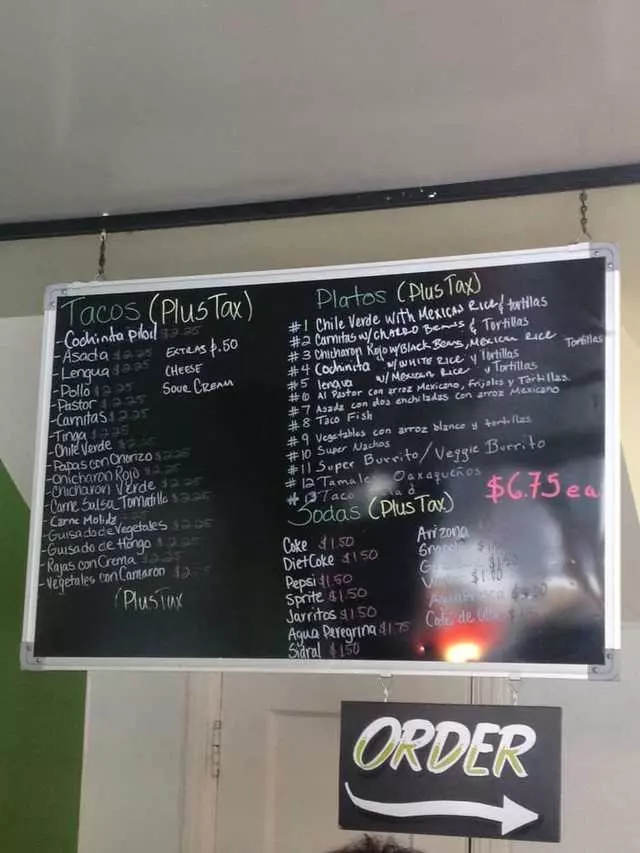 Tacos (Plus Tax)
- Cochinita Pibil $2.25
- Asada $2.25
- Lengua $2.25
- Pollo $2.25
- Pastor $2.25
- Carnitas $2.25
- Tinga $2.25
- Chile Verde $2.25
- Papas con Chorizo $2.25
- Chicharon Rojo $2.25
- Chicharon Verde $2.25
- Carne Salsa Tomatillo $2.25
- Carne Molida
- Guisado de Vegetales $2.25
- Guisado de Hongo $2.25
- Rajas con Crema $2.25
- Vegetales con Camaron
(Plus Tax
Extras $.50
Cheese
Sour Cream
Platos (Plus Tax)
#1 Chile Verde with Mexican Rice/ tortillas
#2 Carnitas w/ Charro Beans & Tortillas
#3 Chicharon Rojo w/ Black Beans, Mexican Rice Tortillas
#4 Cochinita w/ White Rice y Tortillas
#5 lengua w/ Mexican Rice y Tortillas
#6 Al Pastor con arroz Mexicano, Frijoles y Tortillas
#7 Asada con dos enchiladas con arroz Mexicano
#8 Taco Fish
#9 Vegetables con arroz blanco y tortillas
#10 Super Nachos
#11 Super Burrito/Veggie Burrito
#12 Tamales Oaxaqueños
#13 Taco
$6.75 ea
Sodas (Plus Tax)
Coke $1.50
Diet Coke $1.50
Pepsi $1.50
Sprite $1.50
Jarritos $1.50
Agua Peregrina $1.75
Sidral $1.50
Arizona
ORDER